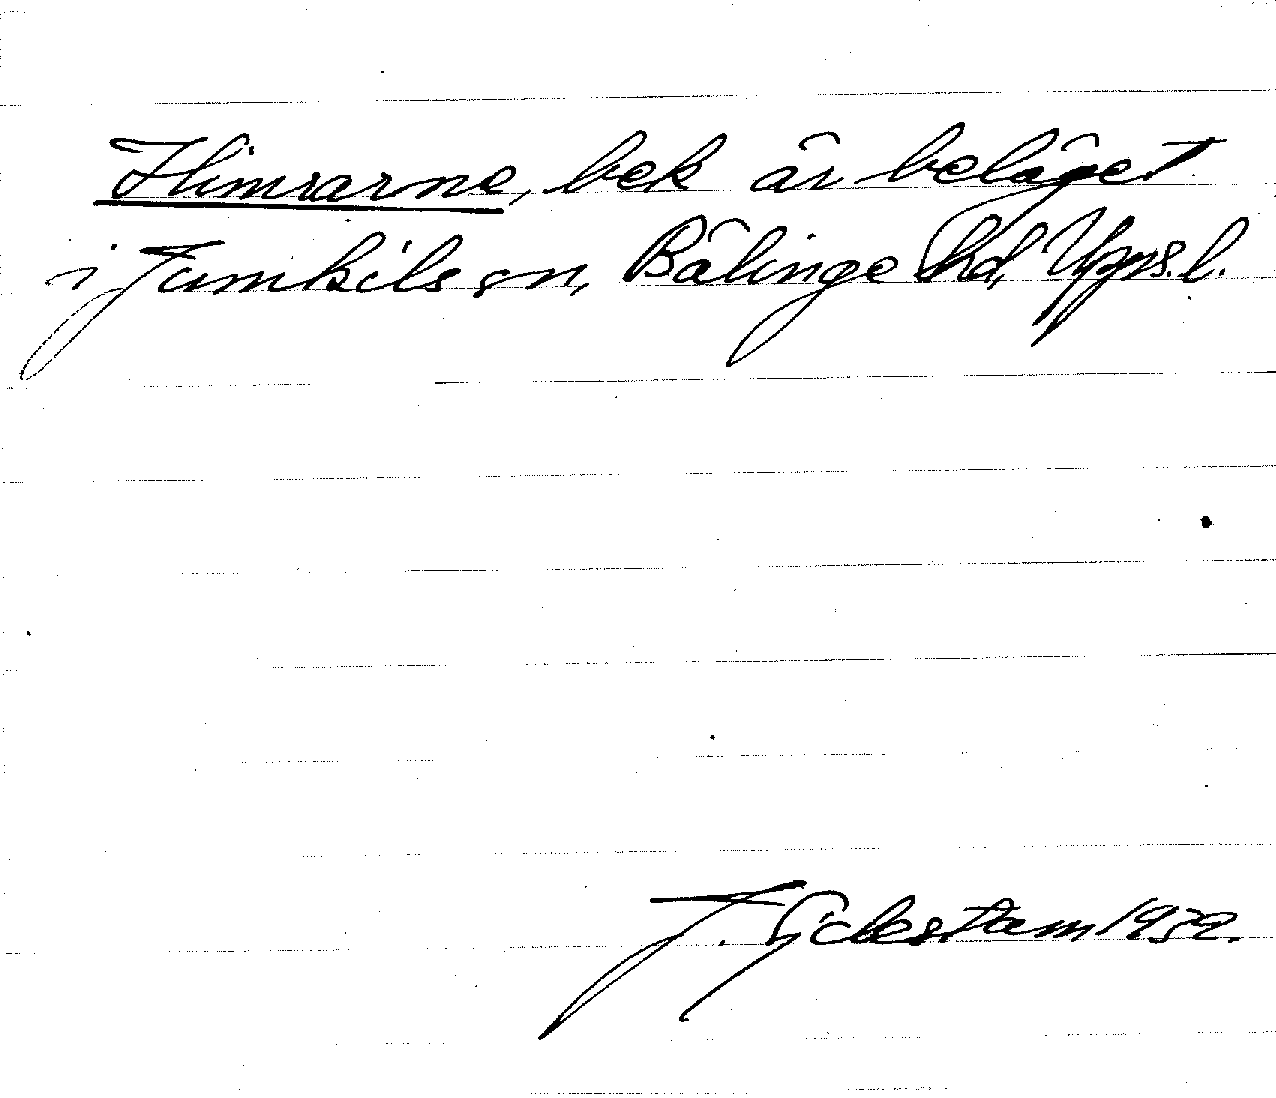 Himrarne, bek är beläget
i Jumkils sn, Bälinge hd, Upps. l.
J. 1932.